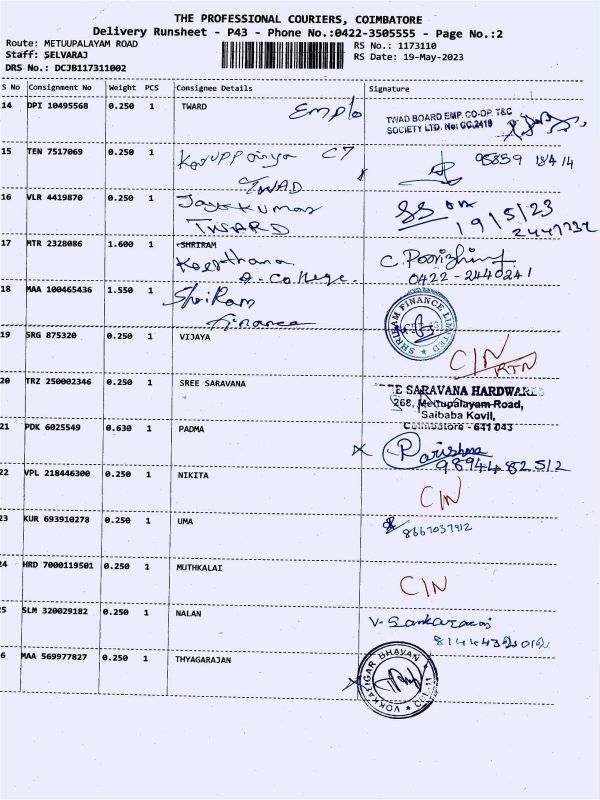 THE PROFESSIONAL COURIERS, COIMBATORE
Delivery Runsheet - P43 - Phone No.:0422-3505555 - Page No.:2
Route: METUUPALAYAM ROAD
Staff: SELVARAJ
DRS No.: DCJB117311002
RS No.: 1173110
RS Date: 19-May-2023
S No Consignment No Weight PCS Consignee Details Signature
14 DPI 10495568 0.250 1 TWARD Emplo
TWAD BOARD EMP. CO-OP. T&C
SOCIETY LTD. No: CC.2418
15 TEN 7517069 0.250 1
TWAD
16 VLR 4419870 0.250 1 Jayakumar
TWARD
19/5/23
17 MTR 2328086 1.600 1 SHRIRAM
Keerthana
A-College.
0422-2440241
18 MAA 100465436 1.550 1 ShriRam
Finance
SHRIRAM FINANCE LIMITED
19 SRG 875320 0.250 1 VIJAYA C/N
RTN
20 TRZ 250002346 0.250 1 SREE SARAVANA
E SARAVANA HARDWARES
268, Mettupalayam Road,
Saibaba Kovil,
Coimbatore - 641 043
21 PDK 6025549 0.630 1 PADMA
98944 82512
22 VPL 218446300 0.250 1 NIKITA C/N
23 KUR 693910278 0.250 1 UMA 8667037912
24 HRD 7000119501 0.250 1 MUTHKALAI C/N
25 SLM 320029182 0.250 1 NALAN
26 MAA 569977827 0.250 1 THYAGARAJAN
VOKKALIGAR BHAVAN